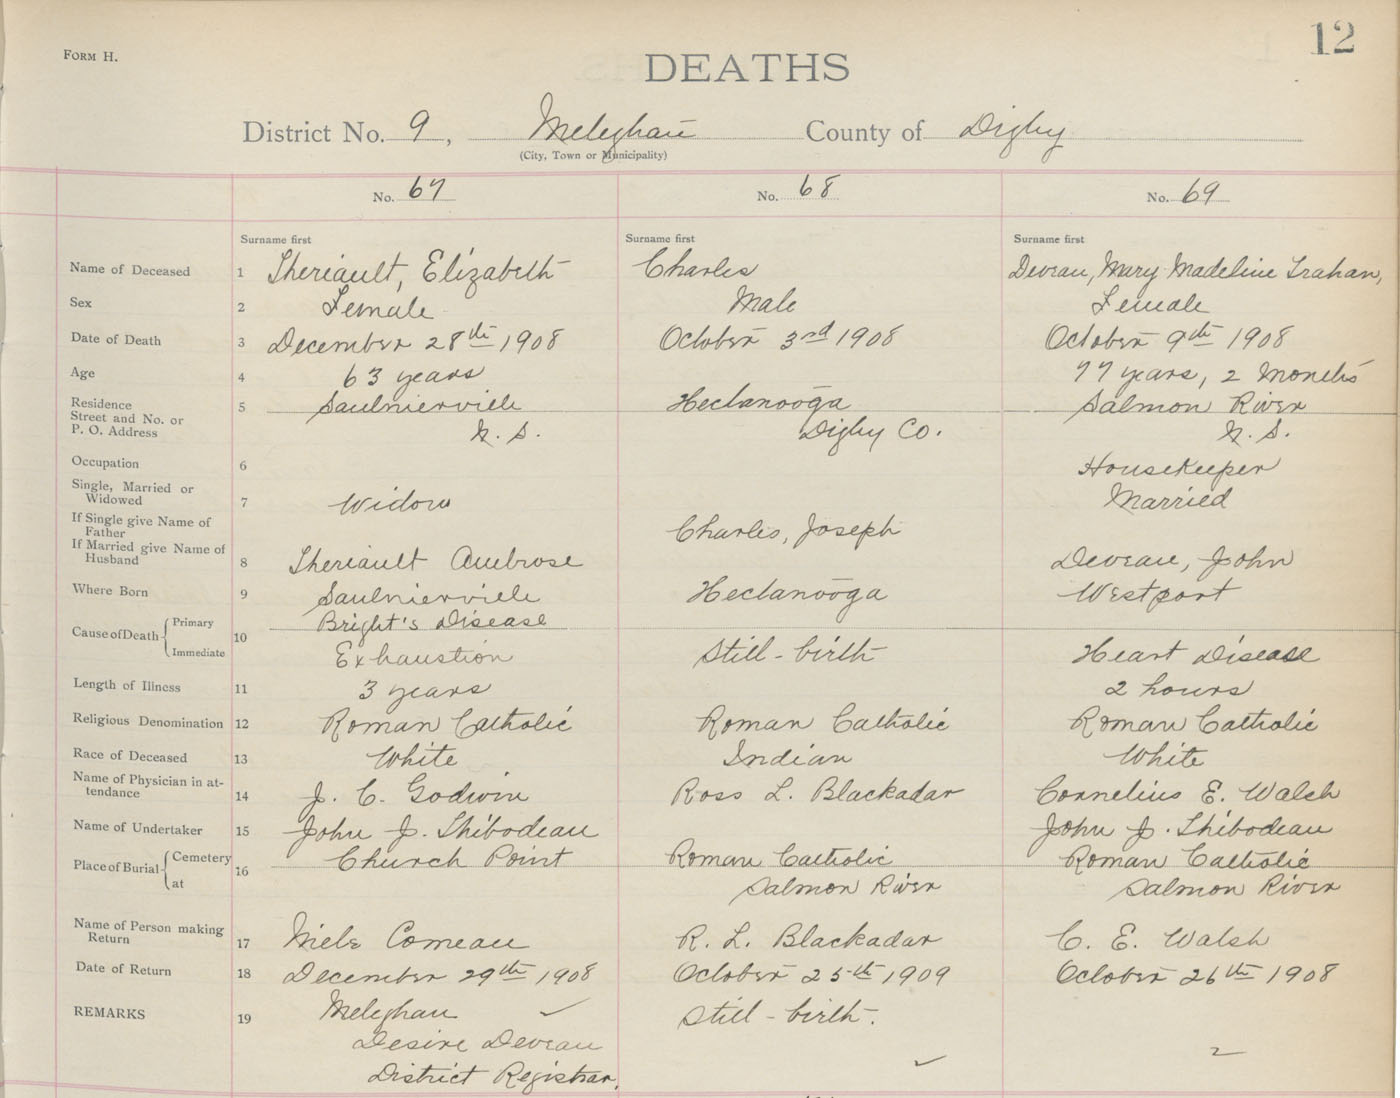 12
FORM H.
DEATHS
District No. 9, Meteghan County of Digby
(City, Town or Municipality)
No. 67 No. 68 No. 69
Surname first Surname first Surname first
Name of Deceased 1 Theriault, Elizabeth Charles Deveau, Mary Madeline Trahan,
Sex 2 Female Male Female
Date of Death 3 December 28th 1908 October 3rd 1908 October 9th 1908
Age 4 63 years 77 years, 2 Months
Residence
Street and No. or
P. O. Address 5 Saulnierville Hectanooga Salmon River
N. S. Digby Co. N. S.
Occupation 6 Housekeeper
Single, Married or
Widowed 7 Widow Married
If Single give Name of
Father Charles, Joseph
If Married give Name of
Husband 8 Theriault Ambrose Deveau, John
Where Born 9 Saulnierville Hectanooga Westport
Cause of Death Primary 10 Bright's Disease
Immediate Exhaustion Still-birth Heart Disease
Length of Illness 11 3 years 2 hours
Religious Denomination 12 Roman Catholic Roman Catholic Roman Catholic
Race of Deceased 13 White Indian White
Name of Physician in at-
tendance 14 J. C. Godwin Ross L. Blackadar Cornelius E. Walsh
Name of Undertaker 15 John J. Thibodeau John J. Thibodeau
Place of Burial Cemetery 16 Church Point Roman Catholic Roman Catholic
at Salmon River Salmon River
Name of Person making
Return 17 Comeau R. L. Blackadar C. E. Walsh
Date of Return 18 December 29th 1908 October 25th 1909 October 26th 1908
REMARKS 19 Meteghan Still-birth.
Desire Deveau
District Registrar.